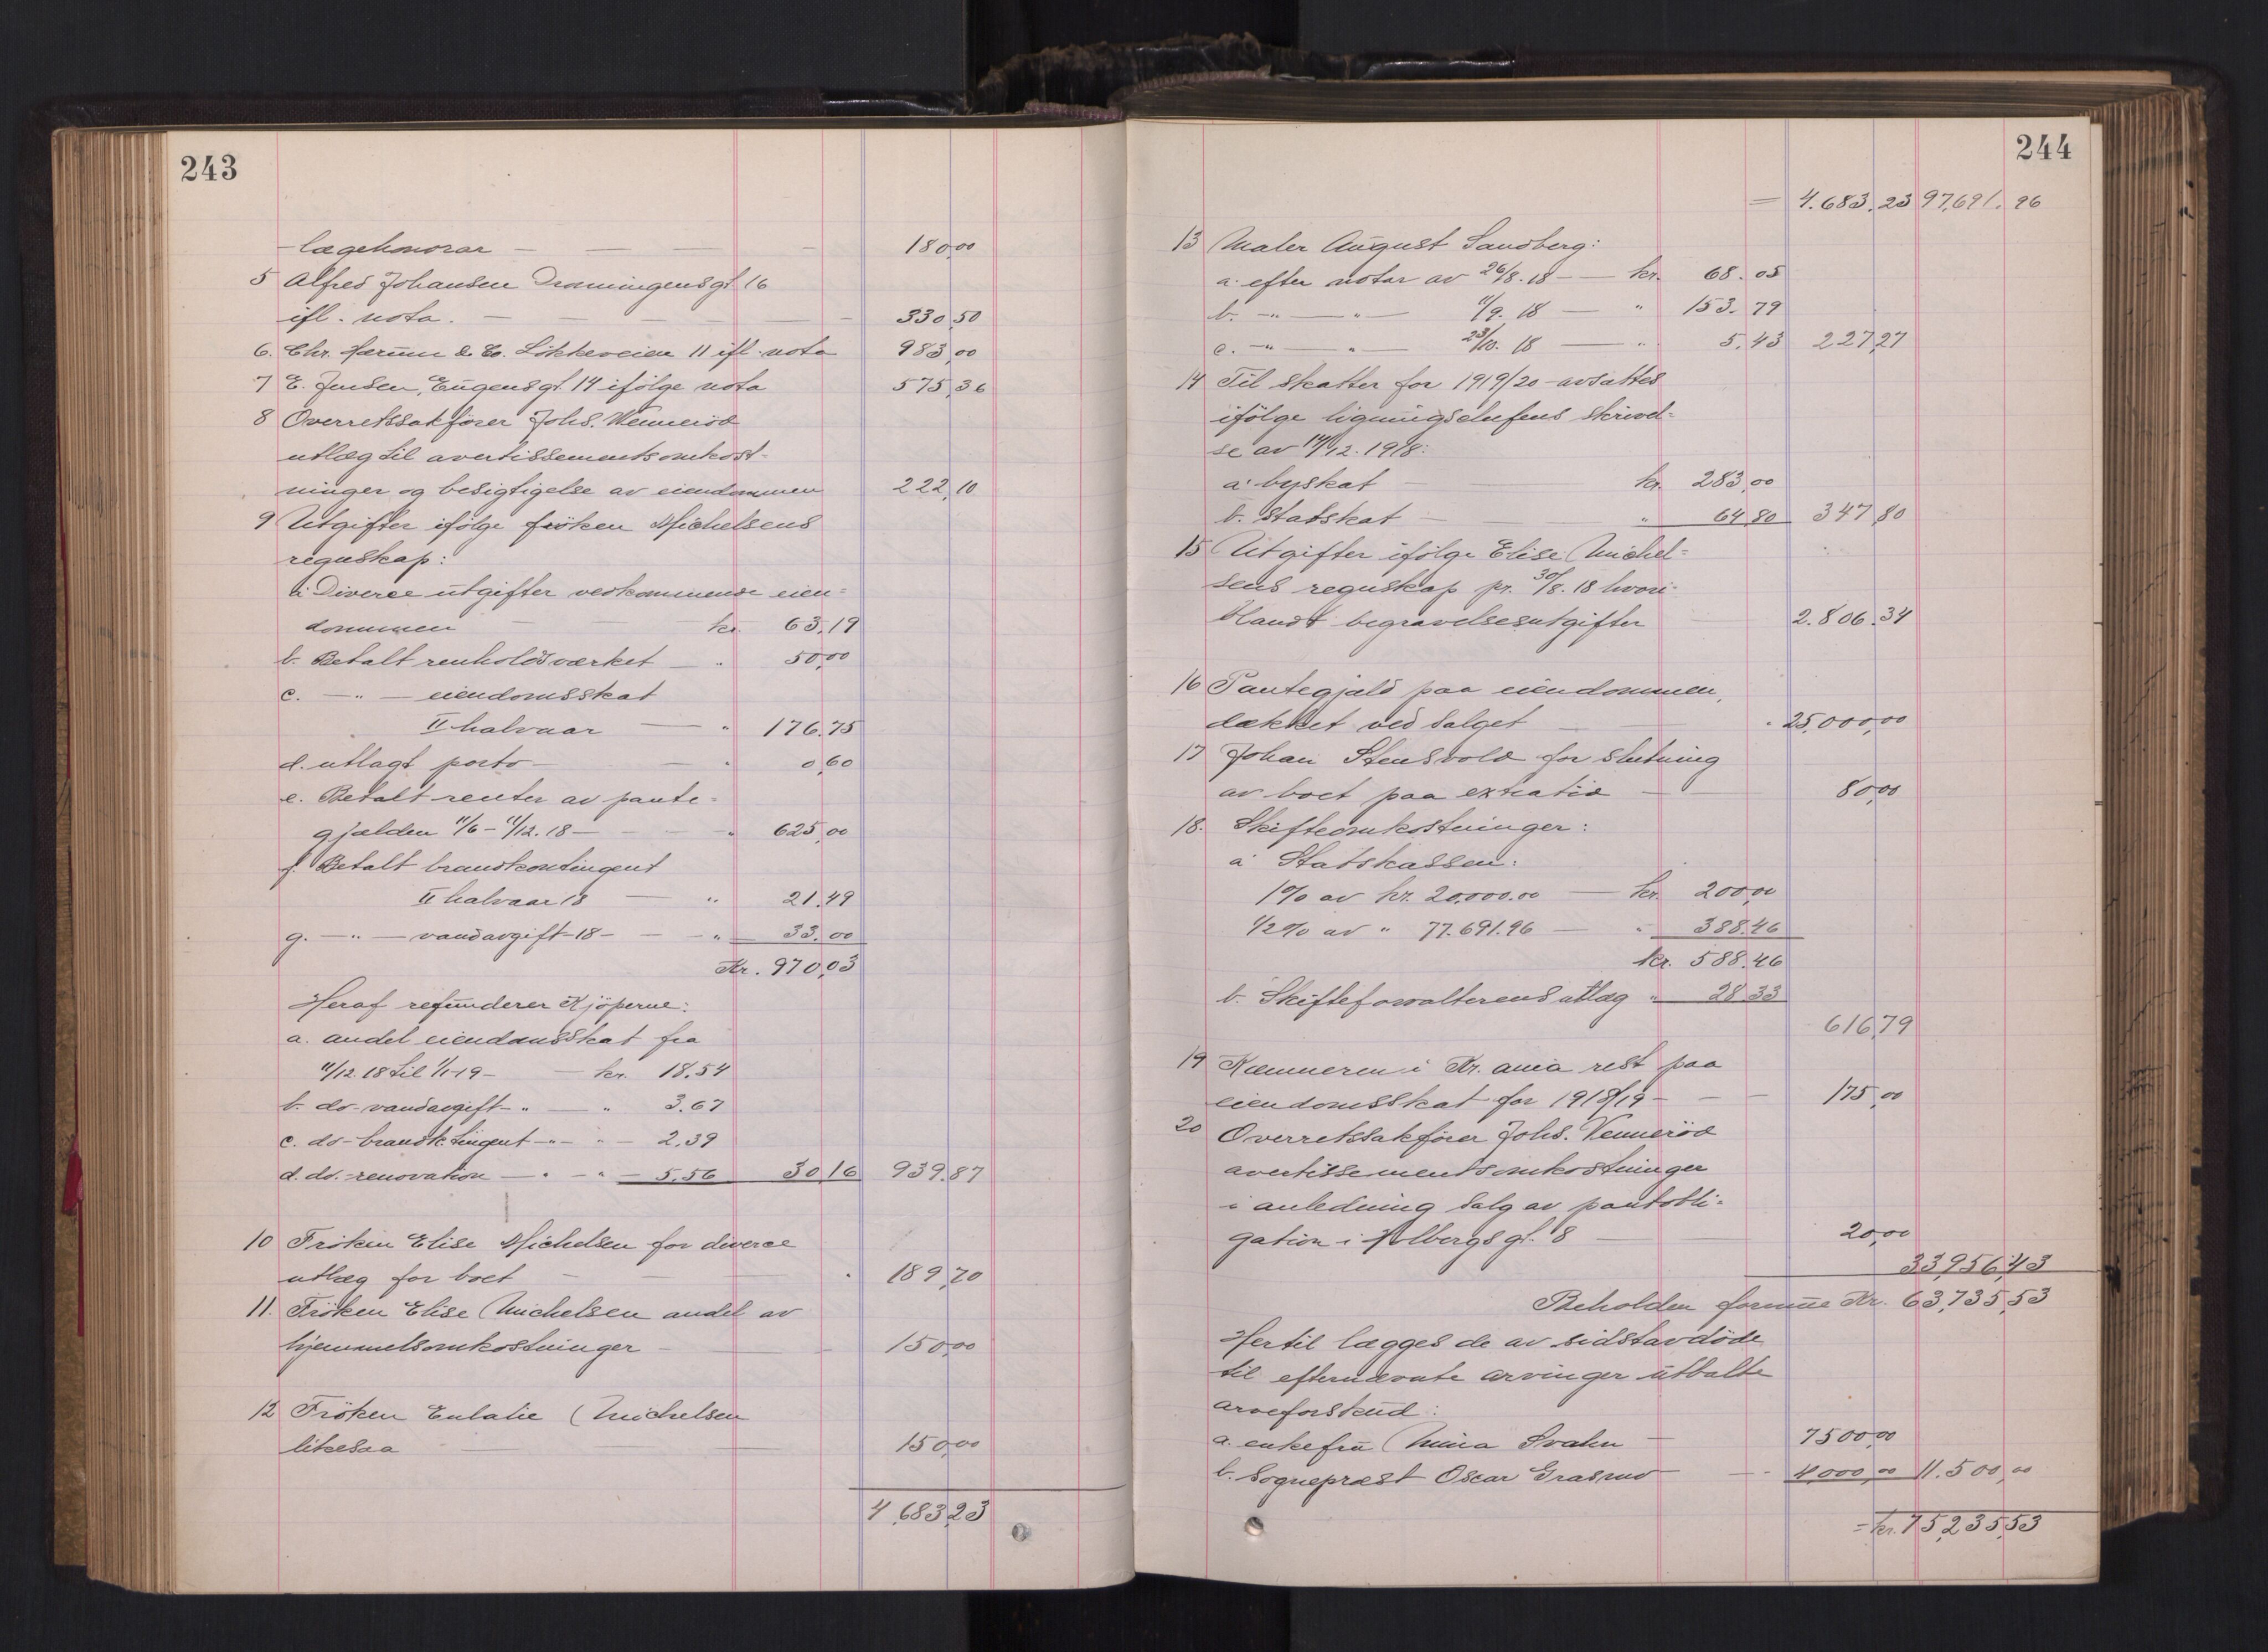 243
lægehonorar — — — — 180,00
5 Alfred Johansen Dronningensgt 16
ifl. nota. — — — — 330,50
6. Chr. Hærum & Co. Lökkeveien 11 ifl. nota 983,00
7 E. Jensen, Eugensgt. 14 ifölge nota 575,36
8 Overretssakförer Johs. Venneröd
utlæg til avertissementsomkost-
ninger og besigtigelse av eiendommen 222,10
9 Utgifter ifölge fröken Michelsens
regnskap:
a. Diverse utgifter vedkommende eien=
dommen — — kr. 63,19
b. Betalt renholdsværket — " 50,00
c. — " — eiendomsskat
II halvaar — " 176.75
d. utlagt porto — — " 0,60
e. Betalt renter av pante=
gjælden 11/6 - 11/12. 18 — — " 625,00
f. Betalt brandkontingent
II halvaar 18 — " 21.49
g. — " — vandavgift - 18 - — " 33.00
Kr. 970,03
Heraf refunderer Kjöperne:
a. andel eiendomsskat fra
11/12. 18 til 1/1-19 — kr. 18.54
b. do - vandavgift - " — " 3.67
c. do - brandk.tingent - " - " - 2,39
d. do. - renovation — " - " - 5,56 30,16 939.87
10 Fröken Elise Michelsen for diverse
utlæg for boet — — — 189,70
11. Fröken Elise Michelsen andel av
hjemmelsomkostninger — — 150,00
12 Fröken Eulalie Michelsen
likesaa — 150,00
4,683,23
244
= 4.683.23 97,691.96
13 Maler August Sandberg:
a. efter notar av 26/8. 18 — kr. 68.05
b. — " — " — 11/9. 18 — " 153.79
c. — " — " — 23/10. 18 — " 5.43 227,27
14 Til skatter for 1919/20 - avsattes
ifölge ligningschefens skrivel=
se av 14/12. 1918:
a. byskat — kr. 283,00
b. statskat — " 64,80 347,80
15 Utgifter ifölge Elise Michel=
sens regnskap pr. 30/8. 18 hvori-
blandt begravelsesutgifter 2.806.34
16 Pantegjæld paa eiendommen,
dækket ved salget — 25,000,00
17 Johan Stensvold for slutning
av boet paa extratid — 80,00
18. Skifteomkostninger:
a. Statskassen:
1% av kr. 20.000.00 — kr. 200,00
1/2% av " 77.691.96 — " 388.46
kr. 588.46
b. Skifteforvalterens utlæg " 28.33
616,79
19 Kæmneren i Kr.ania rest paa
eiendomsskat for 1918/19 - — — 175,00
20 Overretssakförer Johs. Venneröd
avertissementsomkostninger
i anledning salg av pantobli=
gation i Holbergsgt. 8 — 20,00
33,956,43
Beholden formue Kr. 63,735,53
Hertil lægges de av sidstavdöde
til efternævnte arvinger utbetalte
arveforskud:
a. enkefru Mina Svahn — 7500,00
b. Sogneprest Oscar Grasmo — 4,000,00 11.500,00
= kr. 75,235,53